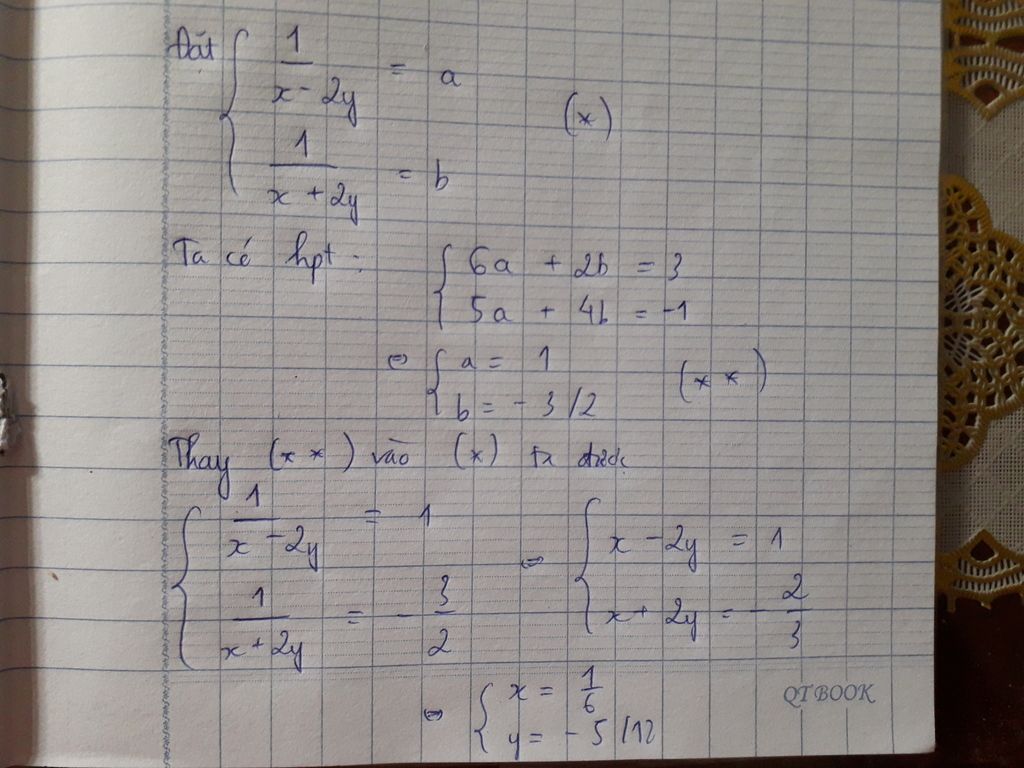 Đặt { 1/(x - 2y) = a
(*)
1/(x + 2y) = b
Ta có hpt : { 6a + 2b = 3
5a + 4b = -1
⇔ { a = 1
b = - 3/2 (* *)
Thay (* *) vào (*) ta được
{ 1/(x - 2y) = 1 ⇔ { x - 2y = 1
1/(x + 2y) = - 3/2 x + 2y = - 2/3
⇔ { x = 1/6
y = - 5/12
QT BOOK